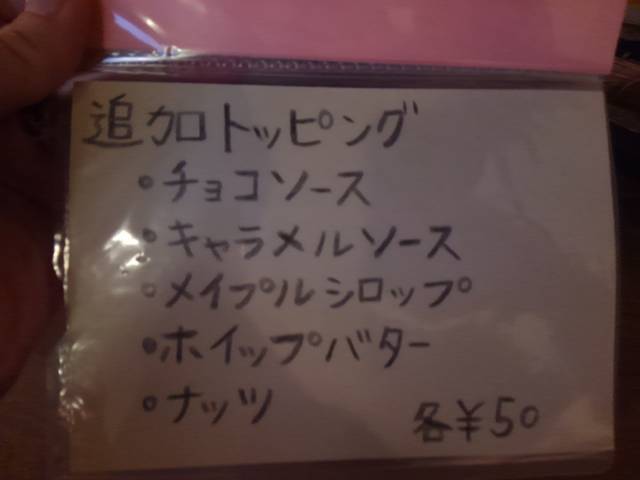 追加トッピング
・チョコソース
・キャラメルソース
・メイプルシロップ
・ホイップバター
・ナッツ
各¥50